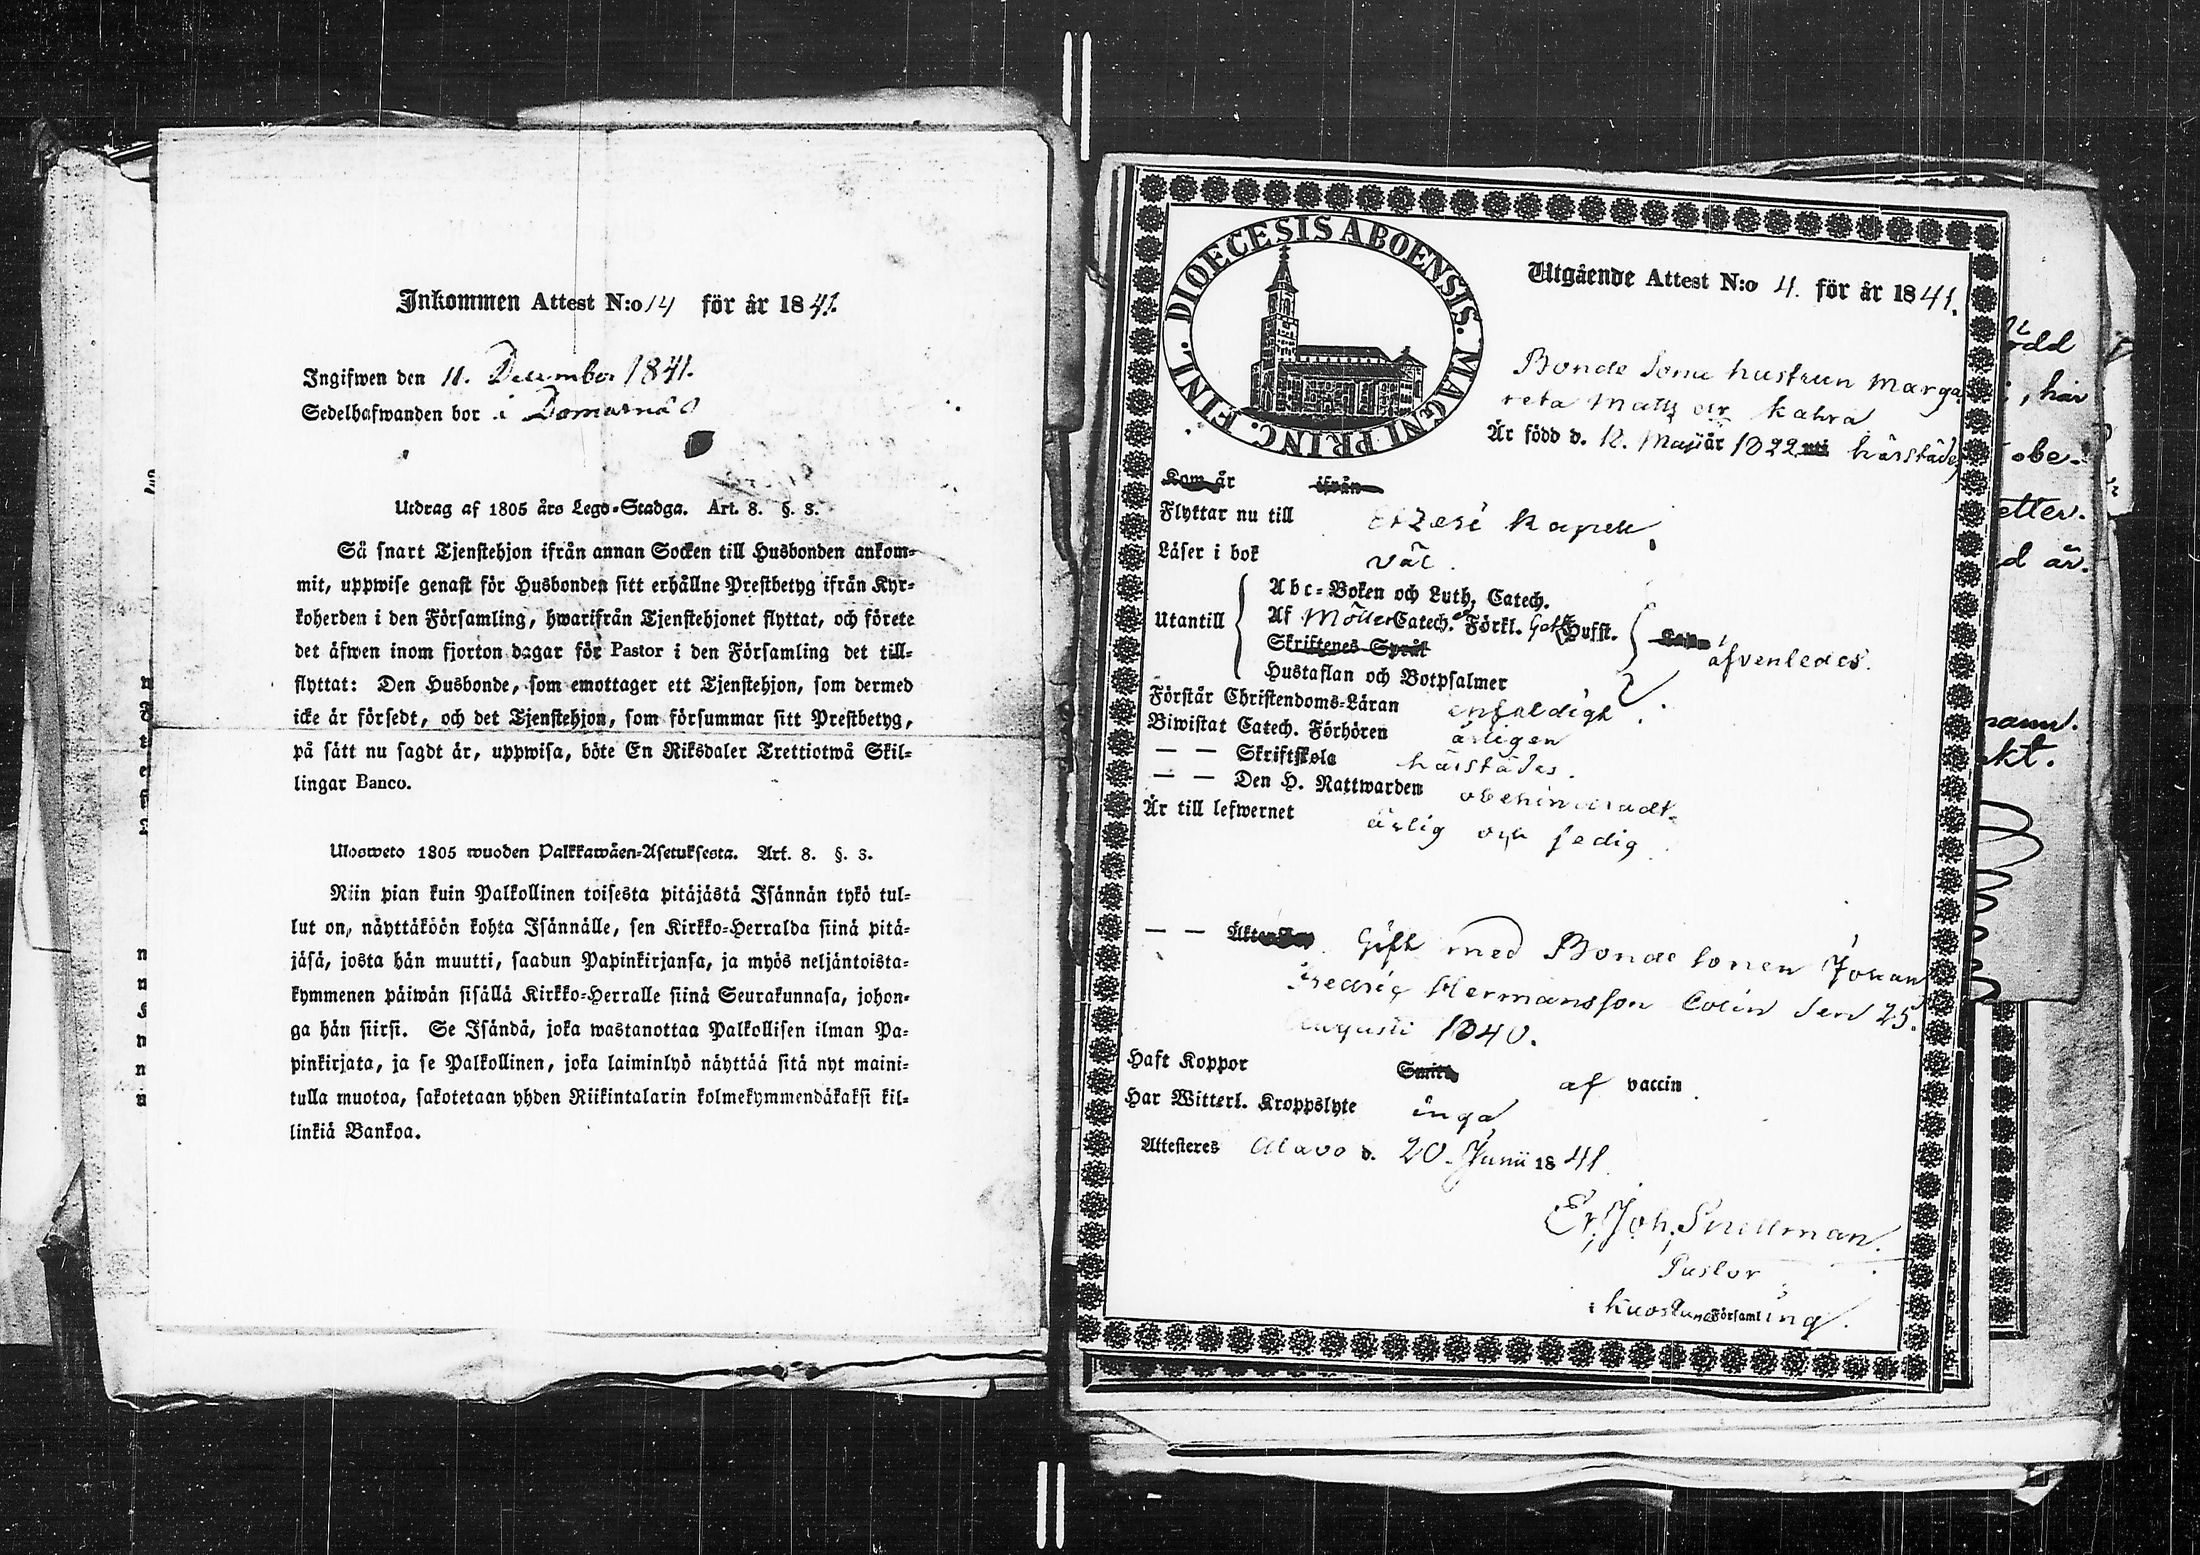 Inkommen Attest N:o 14 för år 1841.
Ingifwen den 11. December 1841.
Sedelhafwanden bor i Domarnäs
Utdrag af 1805 års Lego-Stadga. Art. 8. §. 3.
Så snart Tjenstehjon ifrån annan Socken till Husbonden ankom-
mit, uppwise genast för Husbonden sitt erhållne Prestbetyg ifrån Kyr-
koherden i den Församling, hwarifrån Tjenstehjonet flyttat, och förete
det äfwen inom fjorton dagar för Pastor i den Församling det till-
flyttat: Den Husbonde, som emottager ett Tjenstehjon, som dermed
icke är försedt, och det Tjenstehjon, som försummar sitt Prestbetyg,
på sätt nu sagdt är, uppwisa, böte En Riksdaler Trettiotwå Skil-
lingar Banco.
Ulosweto 1805 wuoden Palkkawäen-Asetuksesta. Art. 8. §. 3.
Niin pian kuin Palkollinen toisesta pitäjästä Isännän tykö tul-
lut on, näyttäköön kohta Isännälle, sen Kirkko-Herralda siinä pitä-
jäsä, josta hän muutti, saadun Papinkirjansa, ja myös neljäntoista-
kymmenen päiwän sisällä Kirkko-Herralle siinä Seurakunnasa, johon-
ga hän siirsi. Se Isändä, joka wastanottaa Palkollisen ilman Pa-
pinkirjata, ja se Palkollinen, joka laiminlyö näyttää sitä nyt maini-
tulla muotoa, sakotetaan yhden Riikintalarin kolmekymmendäkaksi kil-
linkiä Bankoa.
DIOECESIS ABOENSIS. MAGNI PRINC. FINL.
Utgående Attest N:o 4. för år 1841.
Bonde Sone hustrun Marga
reta Matts dr Kahra
Är född d. 12. Maji år 1822 uti härstädes
Kom år ifrån
Flyttar nu till Etzeri Kapell.
Läser i bok väl.
Abc-Boken och Luth. Catech.
Utantill Af Möllers Catech. Förkl. Hufst.
Skriftenes Språk
äfvenledes.
Hustaflan och Botpsalmer
Förstår Christendoms-Läran enfaldigt.
Biwistat Catech. Förhören årligen
— — Skriftskola härstädes.
— — Den H. Nattwarden obehindradt.
Är till lefwernet ärlig och sedig
— — Gift med Bonde sonen Johan
Fredric Hermansson Colin den 25.
Augusti 1840.
Haft Koppor af vaccin
Har Witterl. Kroppslyte inga
Attesteres Alavo d. 20. Junii 1841
Er. Joh. Snellman.
Pastor
i Kuostane Församling.
ödd
, har
obe-
etter.
d är.